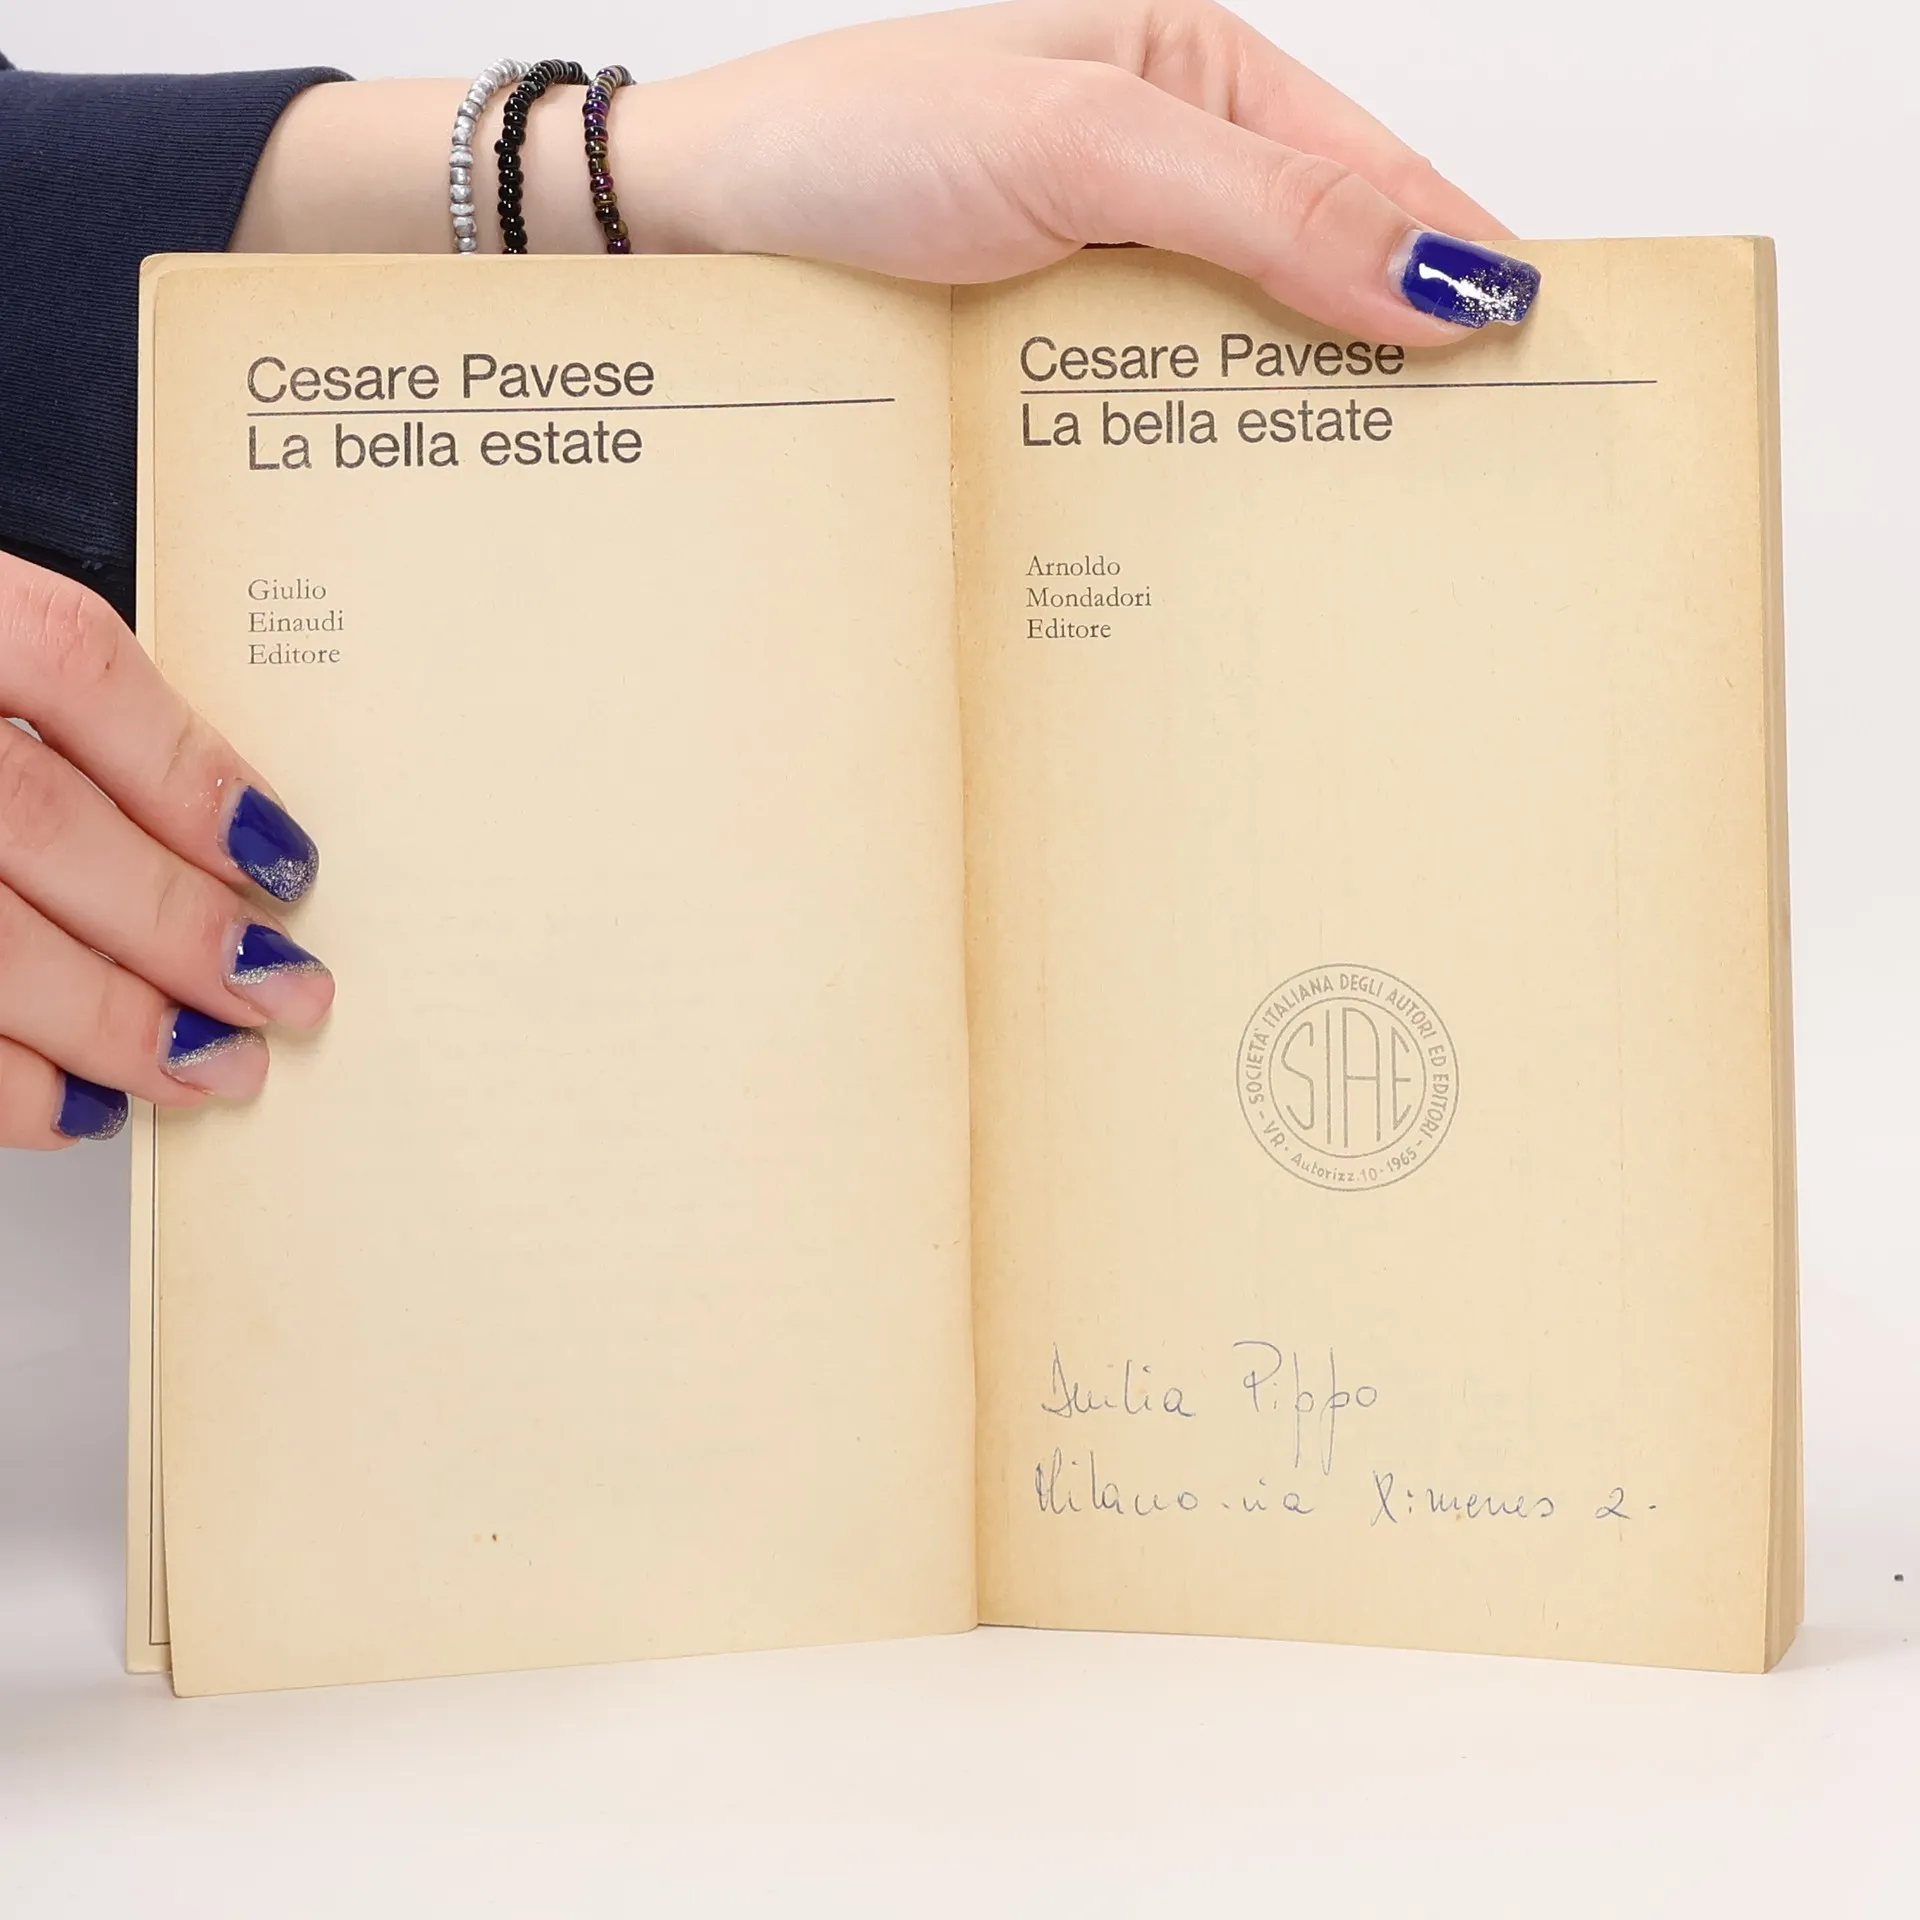 Cesare Pavese
La bella estate
Giulio
Einaudi
Editore
Cesare Pavese
La bella estate
Arnoldo
Mondadori
Editore
SOCIETA' ITALIANA DEGLI AUTORI ED EDITORI -
SIAE
- VR • Autorizz. 10 • 1965 -
Pippo
Milano - via Ximenes 2 -